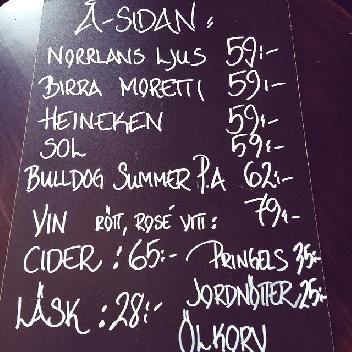 Å-SIDAN:
NORRLANS LJUS 59:-
BIRRA MORETTI 59:-
HEINEKEN 59:-
SOL 59:-
BULLDOG SUMMER P.A 62:-
VIN RÖTT, ROSÉ VITT: 79:-
CIDER : 65:- PRINGELS 35:-
LÄSK : 28:- JORDNÖTTER 25:-
ÖLKORV